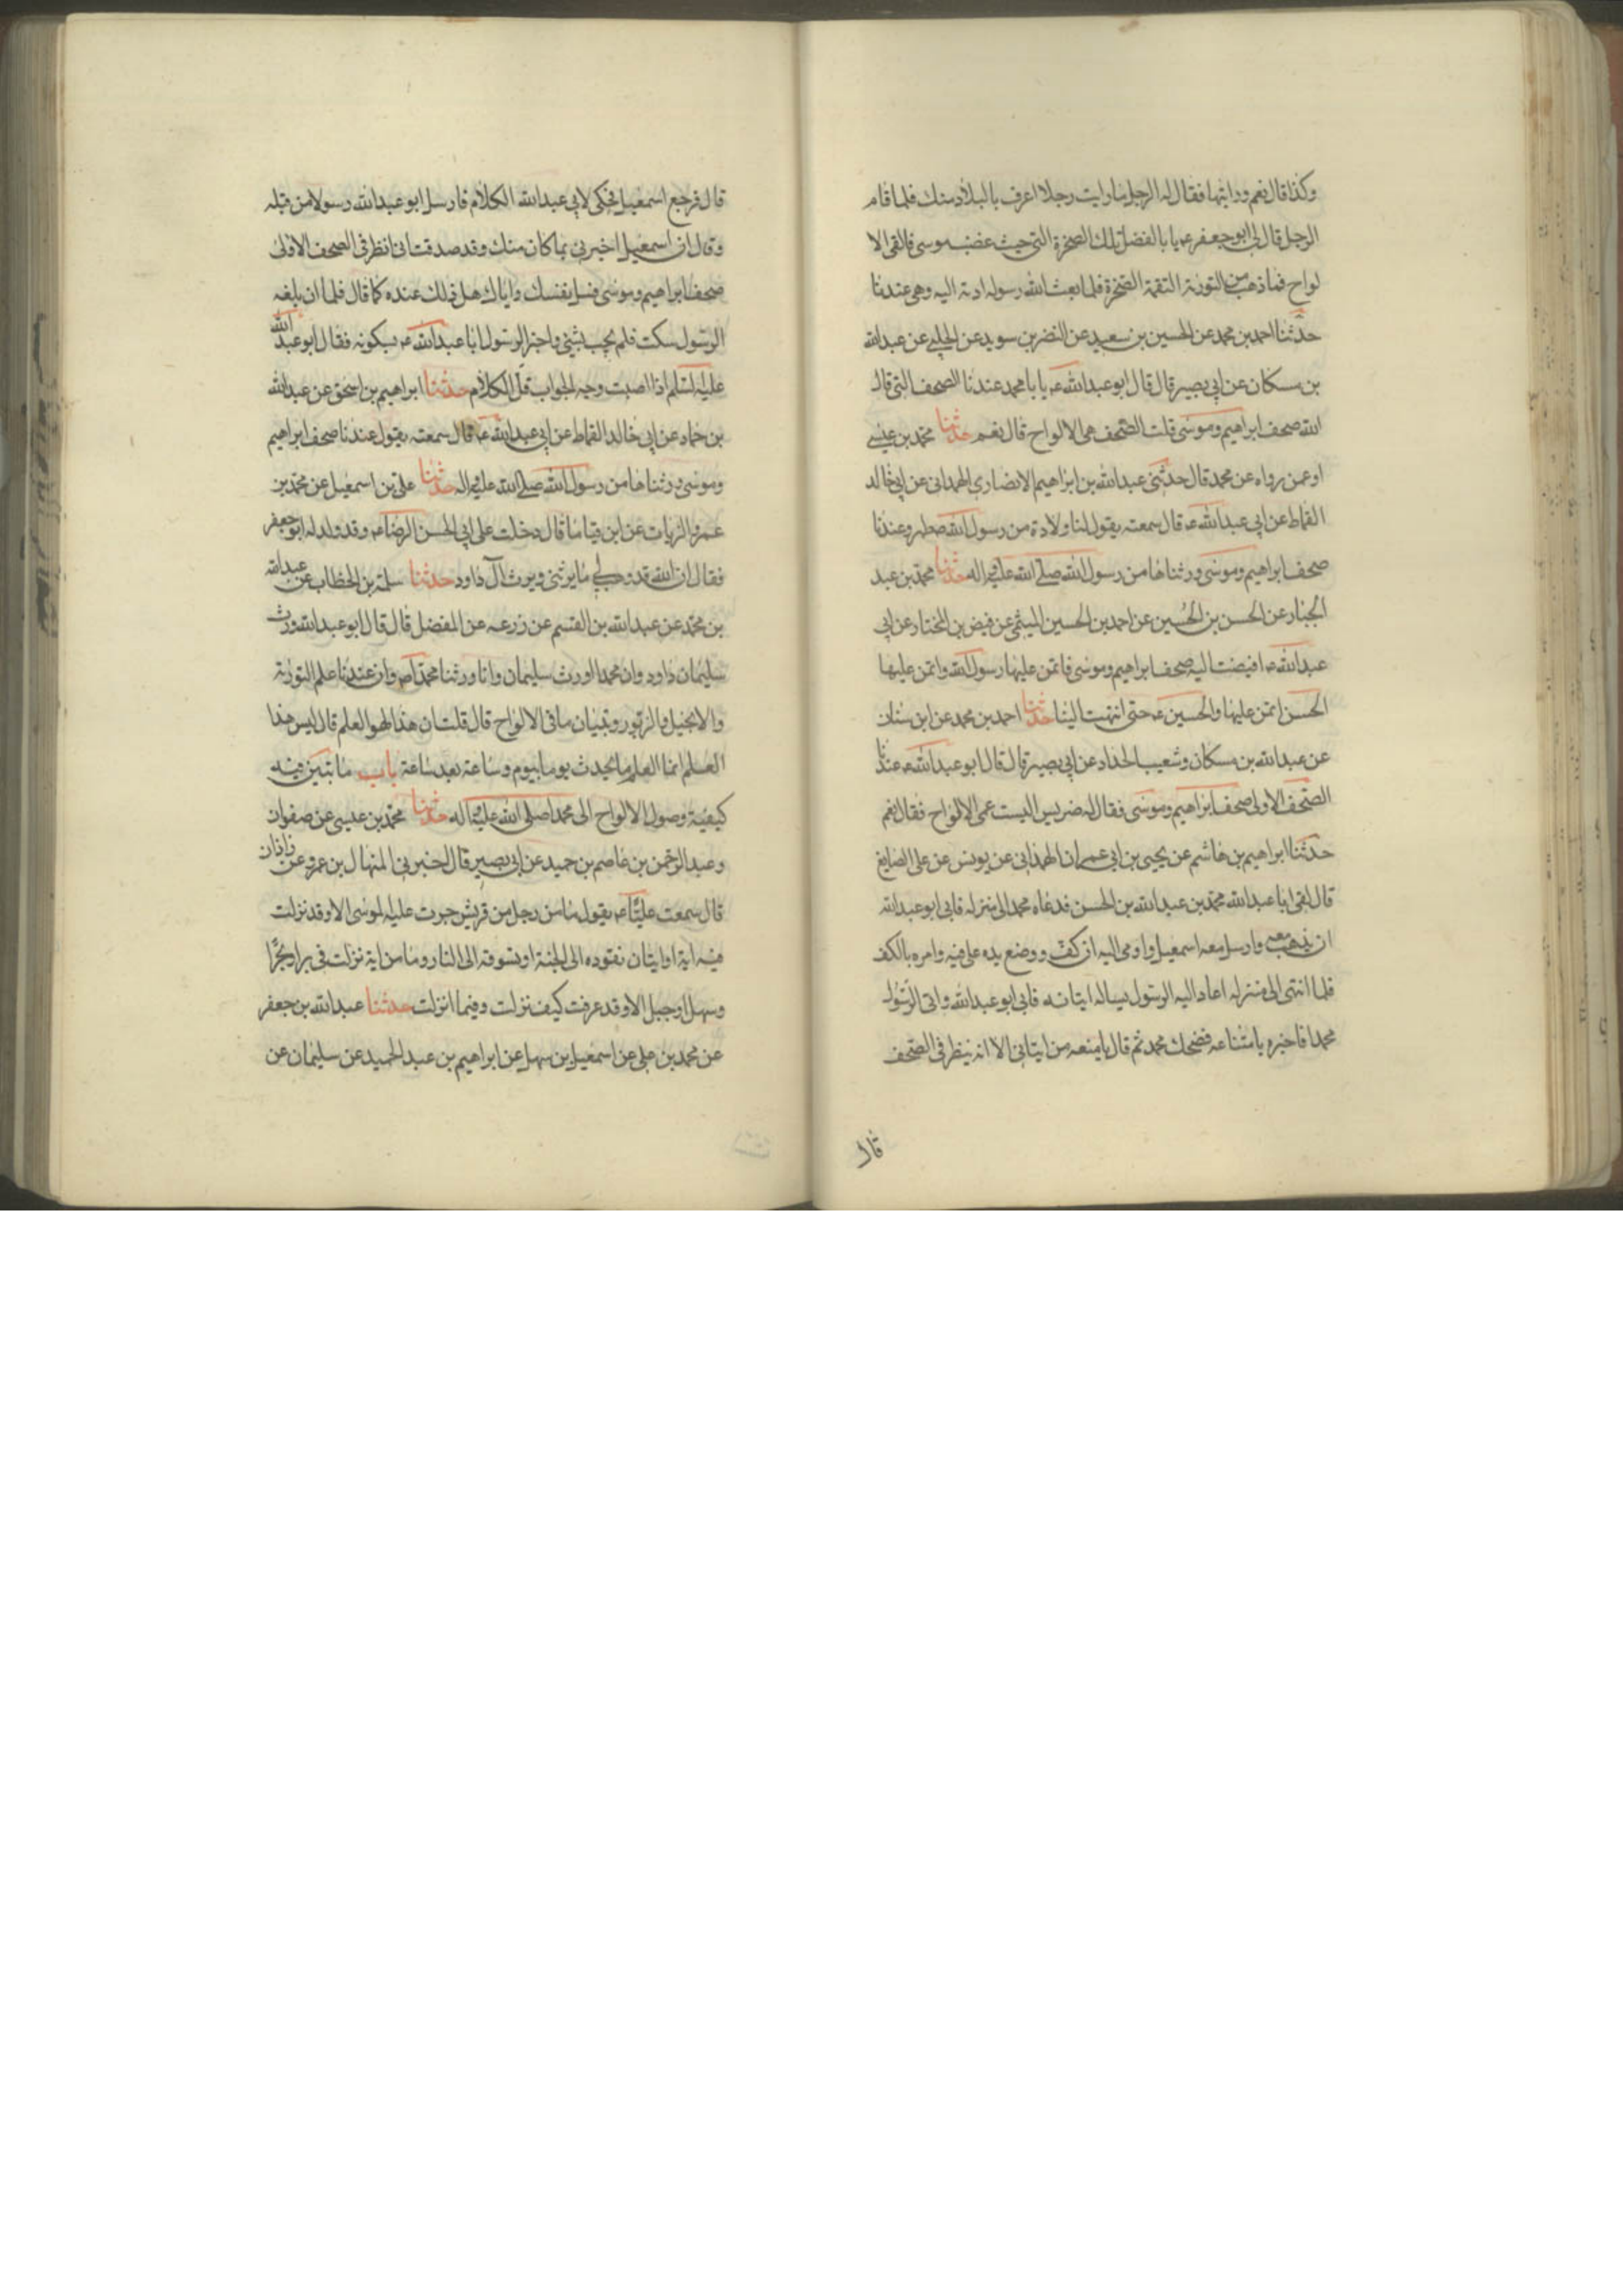 وكذا قال نعم ورايتها فقال له الرجل ما رايت رجلا اعرف بالبلاد منك فلما قام
الرجل قال لى ابو جعفر ع يا با الفضل تلك الصخرة التى حيث غضب موسى فالقى الا
لواح فما ذهب من التورية التقمته الصخرة فلما بعث الله رسوله ادته اليه وهى عندنا
حدثنا احمد بن محمد عن الحسين بن سعيد عن النضر بن سويد عن الحلبى عن عبدالله
بن مسكان عن ابى بصير قال قال ابو عبدالله ع يا با محمد عندنا الصحف التى قال
الله صحف ابراهيم وموسى قلت الصحف هى الالواح قال نعم حدثنا محمد بن عيسى
او عمن رواه عن محمد قال حدثنى عبدالله بن ابراهيم الانصارى الهمدانى عن ابى خالد
القماط عن ابى عبدالله ع قال سمعته يقول لنا ولادة من رسول الله ص طهر وعندنا
صحف ابراهيم وموسى ورثناها من رسول الله صلى الله عليه واله حدثنا محمد بن عبد
الجبار عن الحسن بن الحسين عن احمد بن الحسين الميثمى عن فيض بن المختار عن ابى
عبدالله ع افيضت اليه صحف ابراهيم وموسى فائتمن عليها رسول الله وائتمن عليها
الحسن ائتمن عليها والحسين ع حتى انتهت الينا حدثنا احمد بن محمد عن ابن سنان
عن عبدالله بن مسكان وشعيب الحداد عن ابى بصير قال قال ابو عبدالله ع عندنا
الصحف الاولى صحف ابراهيم وموسى فقال له ضريس اليست هى الالواح فقال نعم
حدثنا ابراهيم بن هاشم عن يحيى بن ابى عمران الهمدانى عن يونس عن على الصايغ
قال لقى ابا عبدالله محمد بن عبدالله بن الحسن فدعاه محمد الى منزله فابى ابو عبدالله
ان يذهب معه وارسل معه اسمعيل واومى اليه ان كف ووضع يده على فيه وامره بالكف
فلما انتهى الى منزله اعاد اليه الرسول يساله ايتانه فابى ابو عبدالله واتى الرسول
محمدا فاخبره بامتناعه فضحك محمد ثم قال ما يمنعه من ايتانى الا انه ينظر فى الصحف
قال
قال فرجع اسمعيل فحكى لابى عبدالله الكلام فارسل ابو عبدالله رسولا من قبله
وقال ان اسمعيل اخبرنى بما كان منك وقد صدقت انى انظر فى الصحف الاولى
صحف ابراهيم وموسى فسل نفسك واباك هل ذلك عنده كما قال فلما ان بلغه
الرسول سكت فلم يجب بشئ واخبر الرسول ابا عبدالله ع بسكوته فقال ابو عبدالله
عليه السلم اذا اصبت وجه الجواب قل الكلام حدثنا ابراهيم بن اسحق عن عبدالله
بن حماد عن ابى خالد القماط عن ابى عبدالله ع قال سمعته يقول عندنا صحف ابراهيم
وموسى ورثناها من رسول الله صلى الله عليه واله حدثنا على بن اسمعيل عن محمد بن
عمرو الزيات عن ابن قياما قال دخلت على ابى الحسن الرضا ع وقد ولد له ابو جعفر
فقال ان الله قد وهب لى ما يرثنى ويرث آل داود حدثنا سلمة بن الخطاب عن عبدالله
بن محمد عن عبدالله بن القسم عن زرعه عن المفضل قال قال ابو عبدالله ورث
سليمان داود وان محمدا ورث سليمان وانا ورثنا محمدا ص وان عندنا علم التورية
والانجيل والزبور وتبيان ما فى الالواح قال قلت ان هذا لهو العلم قال ليس هذا
العلم انما العلم ما يحدث يوما بيوم وساعة بعد ساعة باب ما تبين فيه
كيفية وصول الالواح الى محمد صلى الله عليه وآله حدثنا محمد بن عيسى عن صفوان
وعبد الرحمن بن عاصم بن حميد عن ابى بصير قال اخبرنى المنهال بن عمرو عن زاذان
قال سمعت عليا ع يقول ما من رجل من قريش جرت عليه لموسى الا وقد نزلت
فيه اية او ايتان تقوده الى الجنة او تسوقه الى النار وما من اية نزلت فى بر او بحر
وسهل او جبل الا وقد عرفت كيف نزلت وفيما انزلت حدثنا عبدالله بن جعفر
عن محمد بن على عن اسمعيل بن سهل عن ابراهيم بن عبد الحميد عن سليمان عن